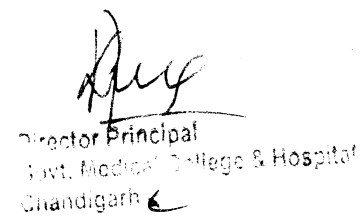 Director Principal
Govt. Medical College & Hospital
Chandigarh